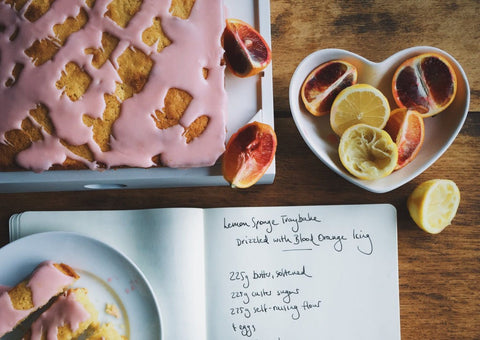 Lemon Sponge Traybake
Drizzled with Blood Orange Icing
225g butter, softened
225g caster sugar
225g self-raising flour
4 eggs